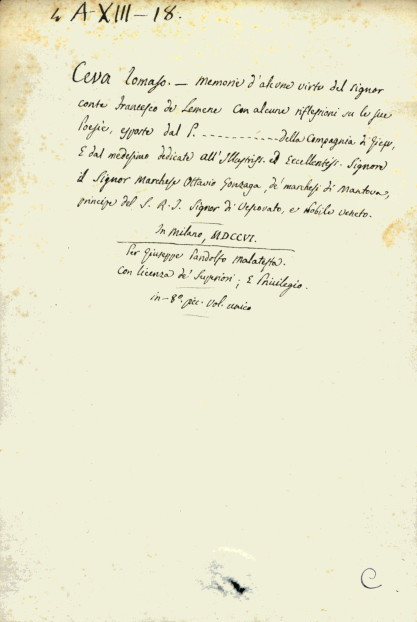 4 A-XIII-18.
Ceva Tomaso. — Memorie d'alcune virtù del Signor
conte Francesco de Lemene con alcune riflessioni su le sue
Poesie, esposte dal P. ------------ della Compagnia di Giesù,
E dal medesimo dedicate all'Illustriss. ed Eccellentiss. Signore
il Signor Marchese Ottavio Gonzaga, de' marchesi di Mantova,
principe del S. R. I. Signor di Vescovato, e Nobile Veneto.
In Milano, MDCCVI.
Per Giuseppe Pandolfo Malatesta.
Con licenza de' Superiori; E Privilegio.
in-8º. picc. vol. unico
C